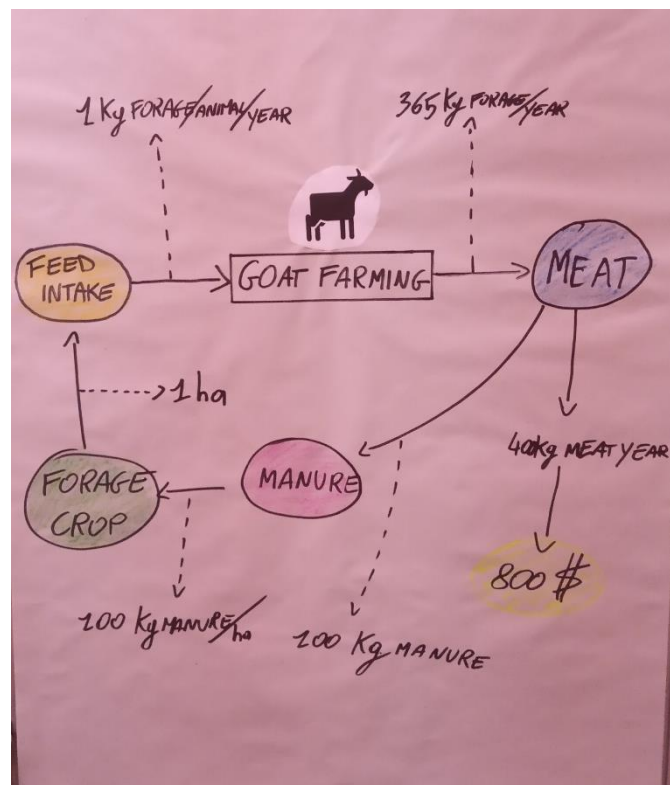 1 Kg FORAGE/ANIMAL/YEAR
365 Kg FORAGE/YEAR
FEED
INTAKE
GOAT FARMING
MEAT
1 ha
40Kg MEAT YEAR
FORAGE
CROP
MANURE
800 $
100 Kg MANURE/ha
100 Kg MANURE